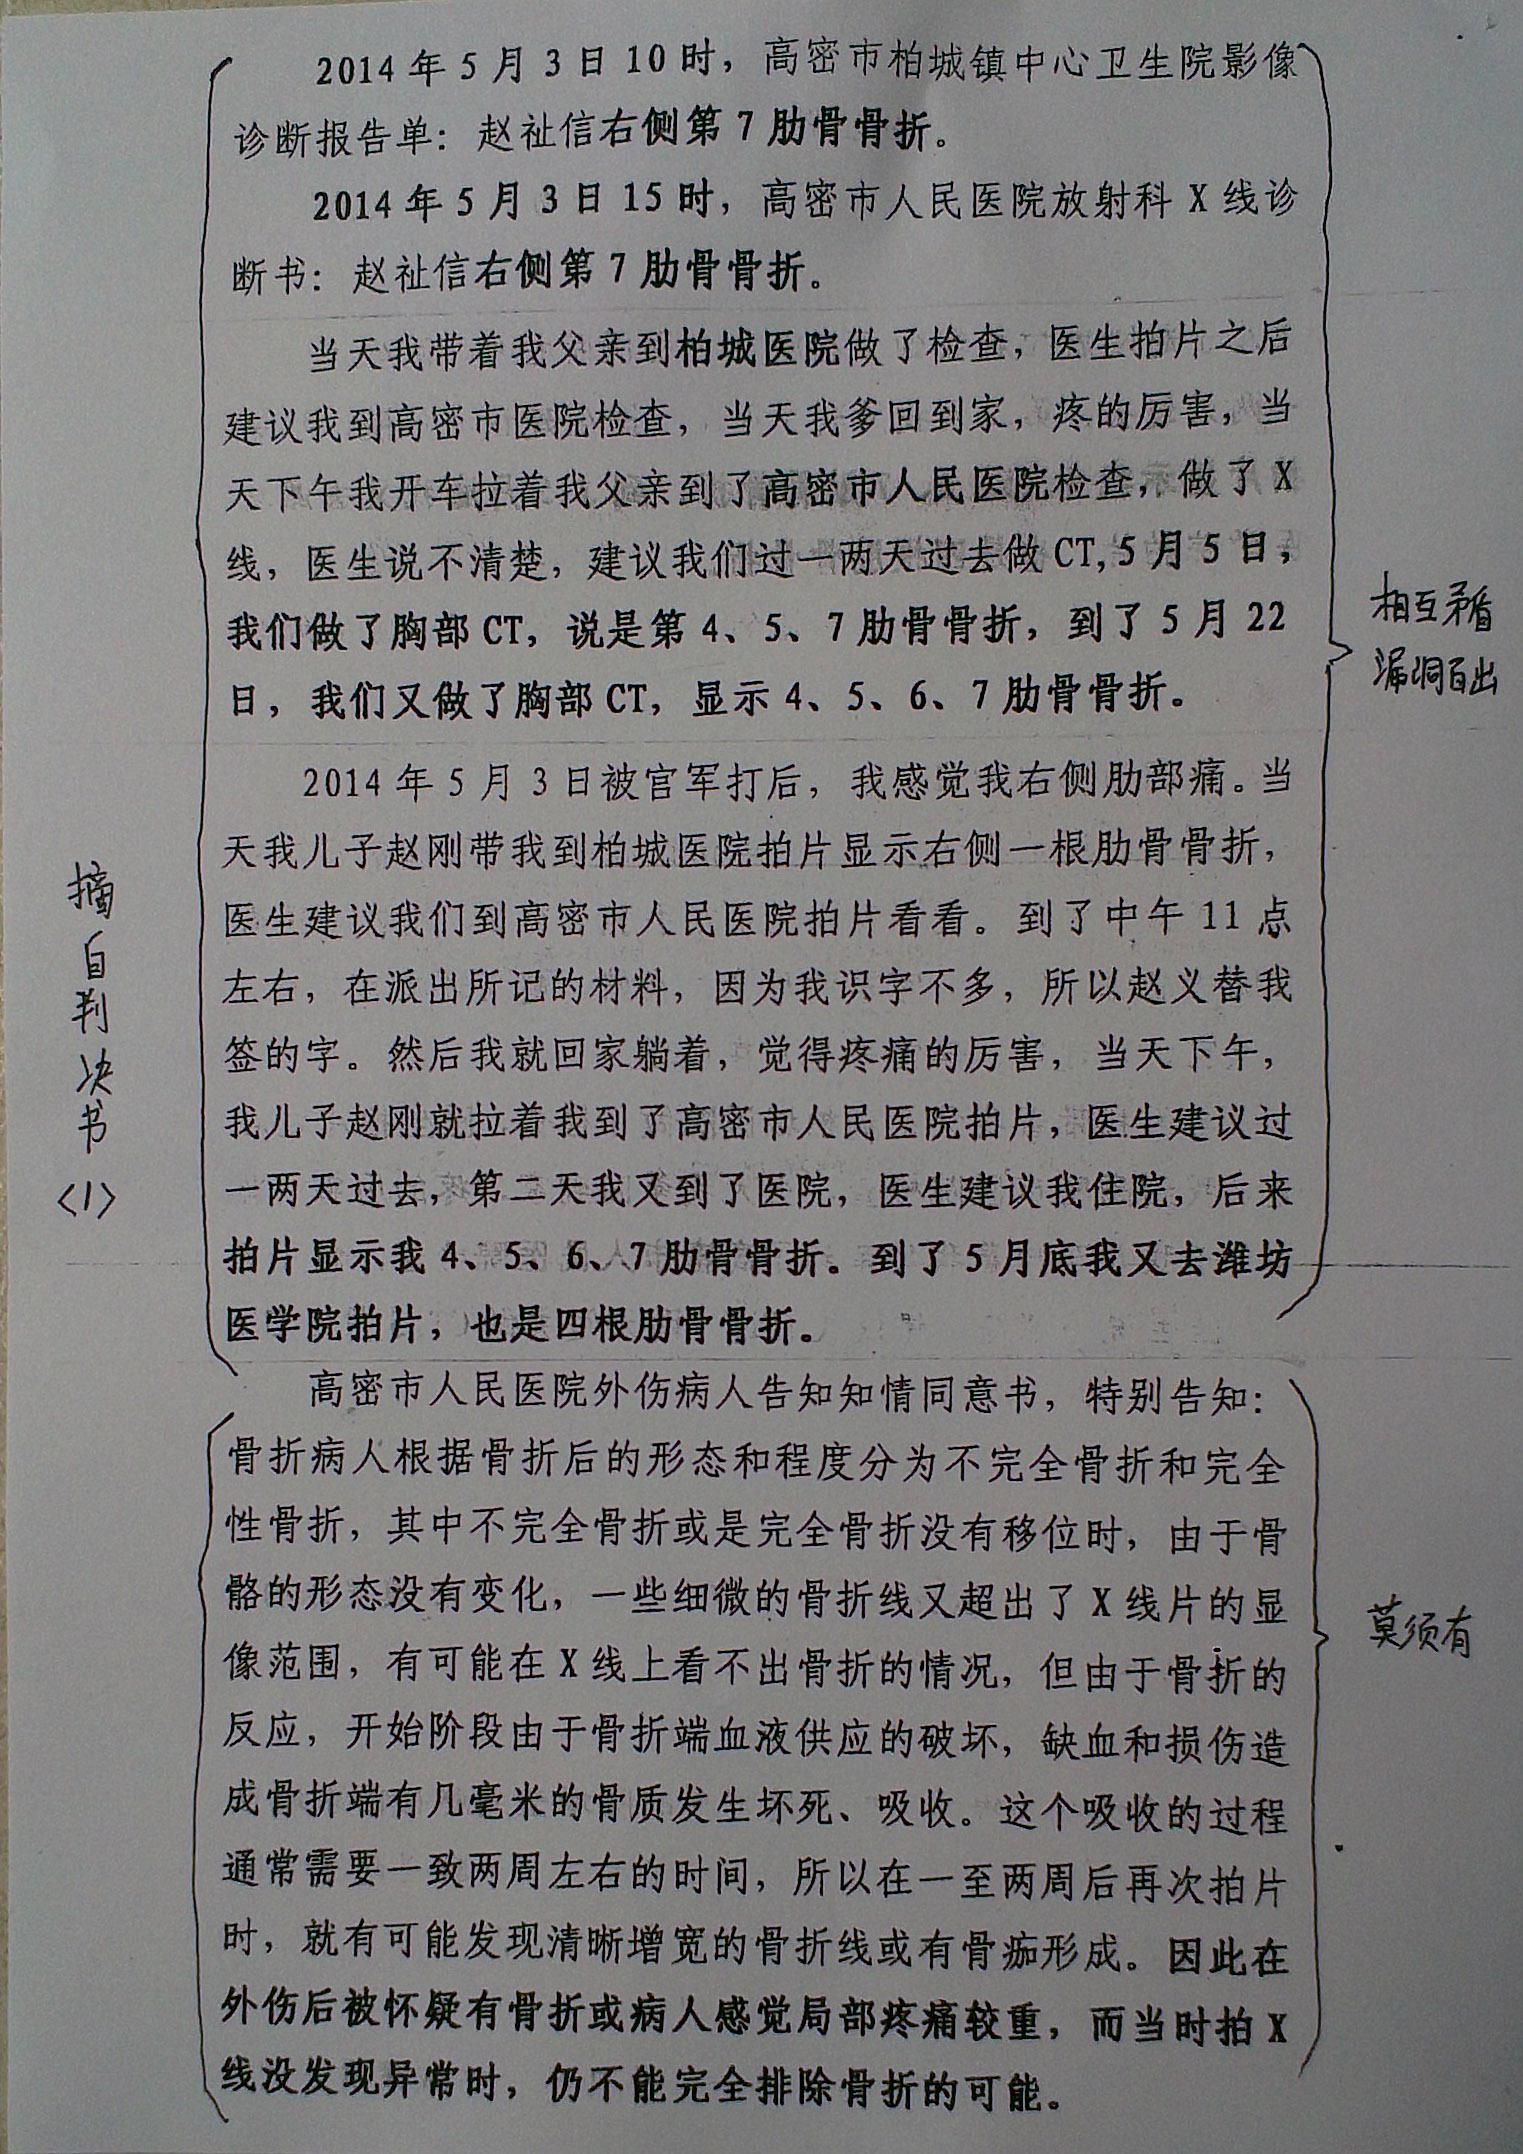 2014年5月3日10时，高密市柏城镇中心卫生院影像
诊断报告单：赵祉信右侧第7肋骨骨折。
2014年5月3日15时，高密市人民医院放射科X线诊
断书：赵祉信右侧第7肋骨骨折。
当天我带着我父亲到柏城医院做了检查，医生拍片之后
建议我到高密市医院检查，当天我爹回到家，疼的厉害，当
天下午我开车拉着我父亲到了高密市人民医院检查，做了X
线，医生说不清楚，建议我们过一两天过去做CT,5月5日，
我们做了胸部CT，说是第4、5、7肋骨骨折，到了5月22
日，我们又做了胸部CT，显示4、5、6、7肋骨骨折。
2014年5月3日被官军打后，我感觉我右侧肋部痛。当
天我儿子赵刚带我到柏城医院拍片显示右侧一根肋骨骨折，
医生建议我们到高密市人民医院拍片看看。到了中午11点
左右，在派出所记的材料，因为我识字不多，所以赵义替我
签的字。然后我就回家躺着，觉得疼痛的厉害，当天下午，
我儿子赵刚就拉着我到了高密市人民医院拍片，医生建议过
一两天过去，第二天我又到了医院，医生建议我住院，后来
拍片显示我4、5、6、7肋骨骨折。到了5月底我又去潍坊
医学院拍片，也是四根肋骨骨折。
高密市人民医院外伤病人告知知情同意书，特别告知：
骨折病人根据骨折后的形态和程度分为不完全骨折和完全
性骨折，其中不完全骨折或是完全骨折没有移位时，由于骨
骼的形态没有变化，一些细微的骨折线又超出了X线片的显
像范围，有可能在X线上看不出骨折的情况，但由于骨折的
反应，开始阶段由于骨折端血液供应的破坏，缺血和损伤造
成骨折端有几毫米的骨质发生坏死、吸收。这个吸收的过程
通常需要一致两周左右的时间，所以在一至两周后再次拍片
时，就有可能发现清晰增宽的骨折线或有骨痂形成。因此在
外伤后被怀疑有骨折或病人感觉局部疼痛较重，而当时拍X
线没发现异常时，仍不能完全排除骨折的可能。
摘自判决书
〈1〉
相互矛盾
漏洞百出
莫须有